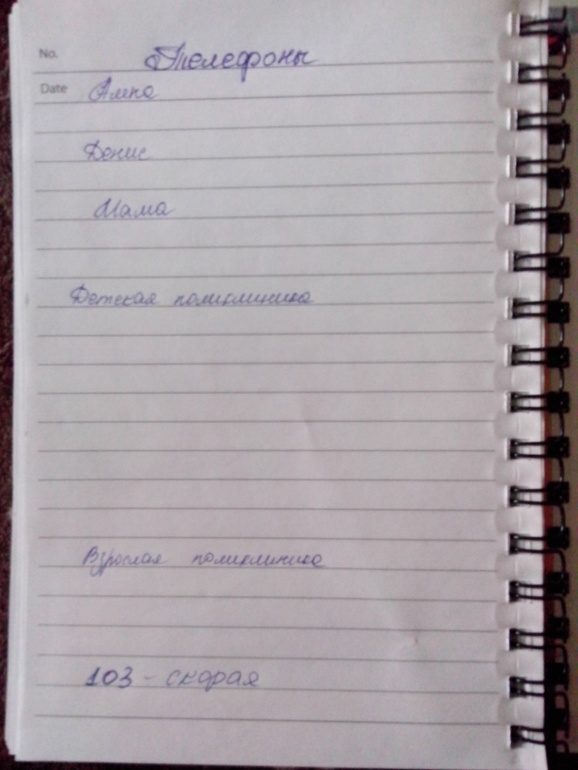 No.
Телефоны
Date
Алла
Денис
Мама
Детская поликлиника
Взрослая поликлиника
103 - скорая